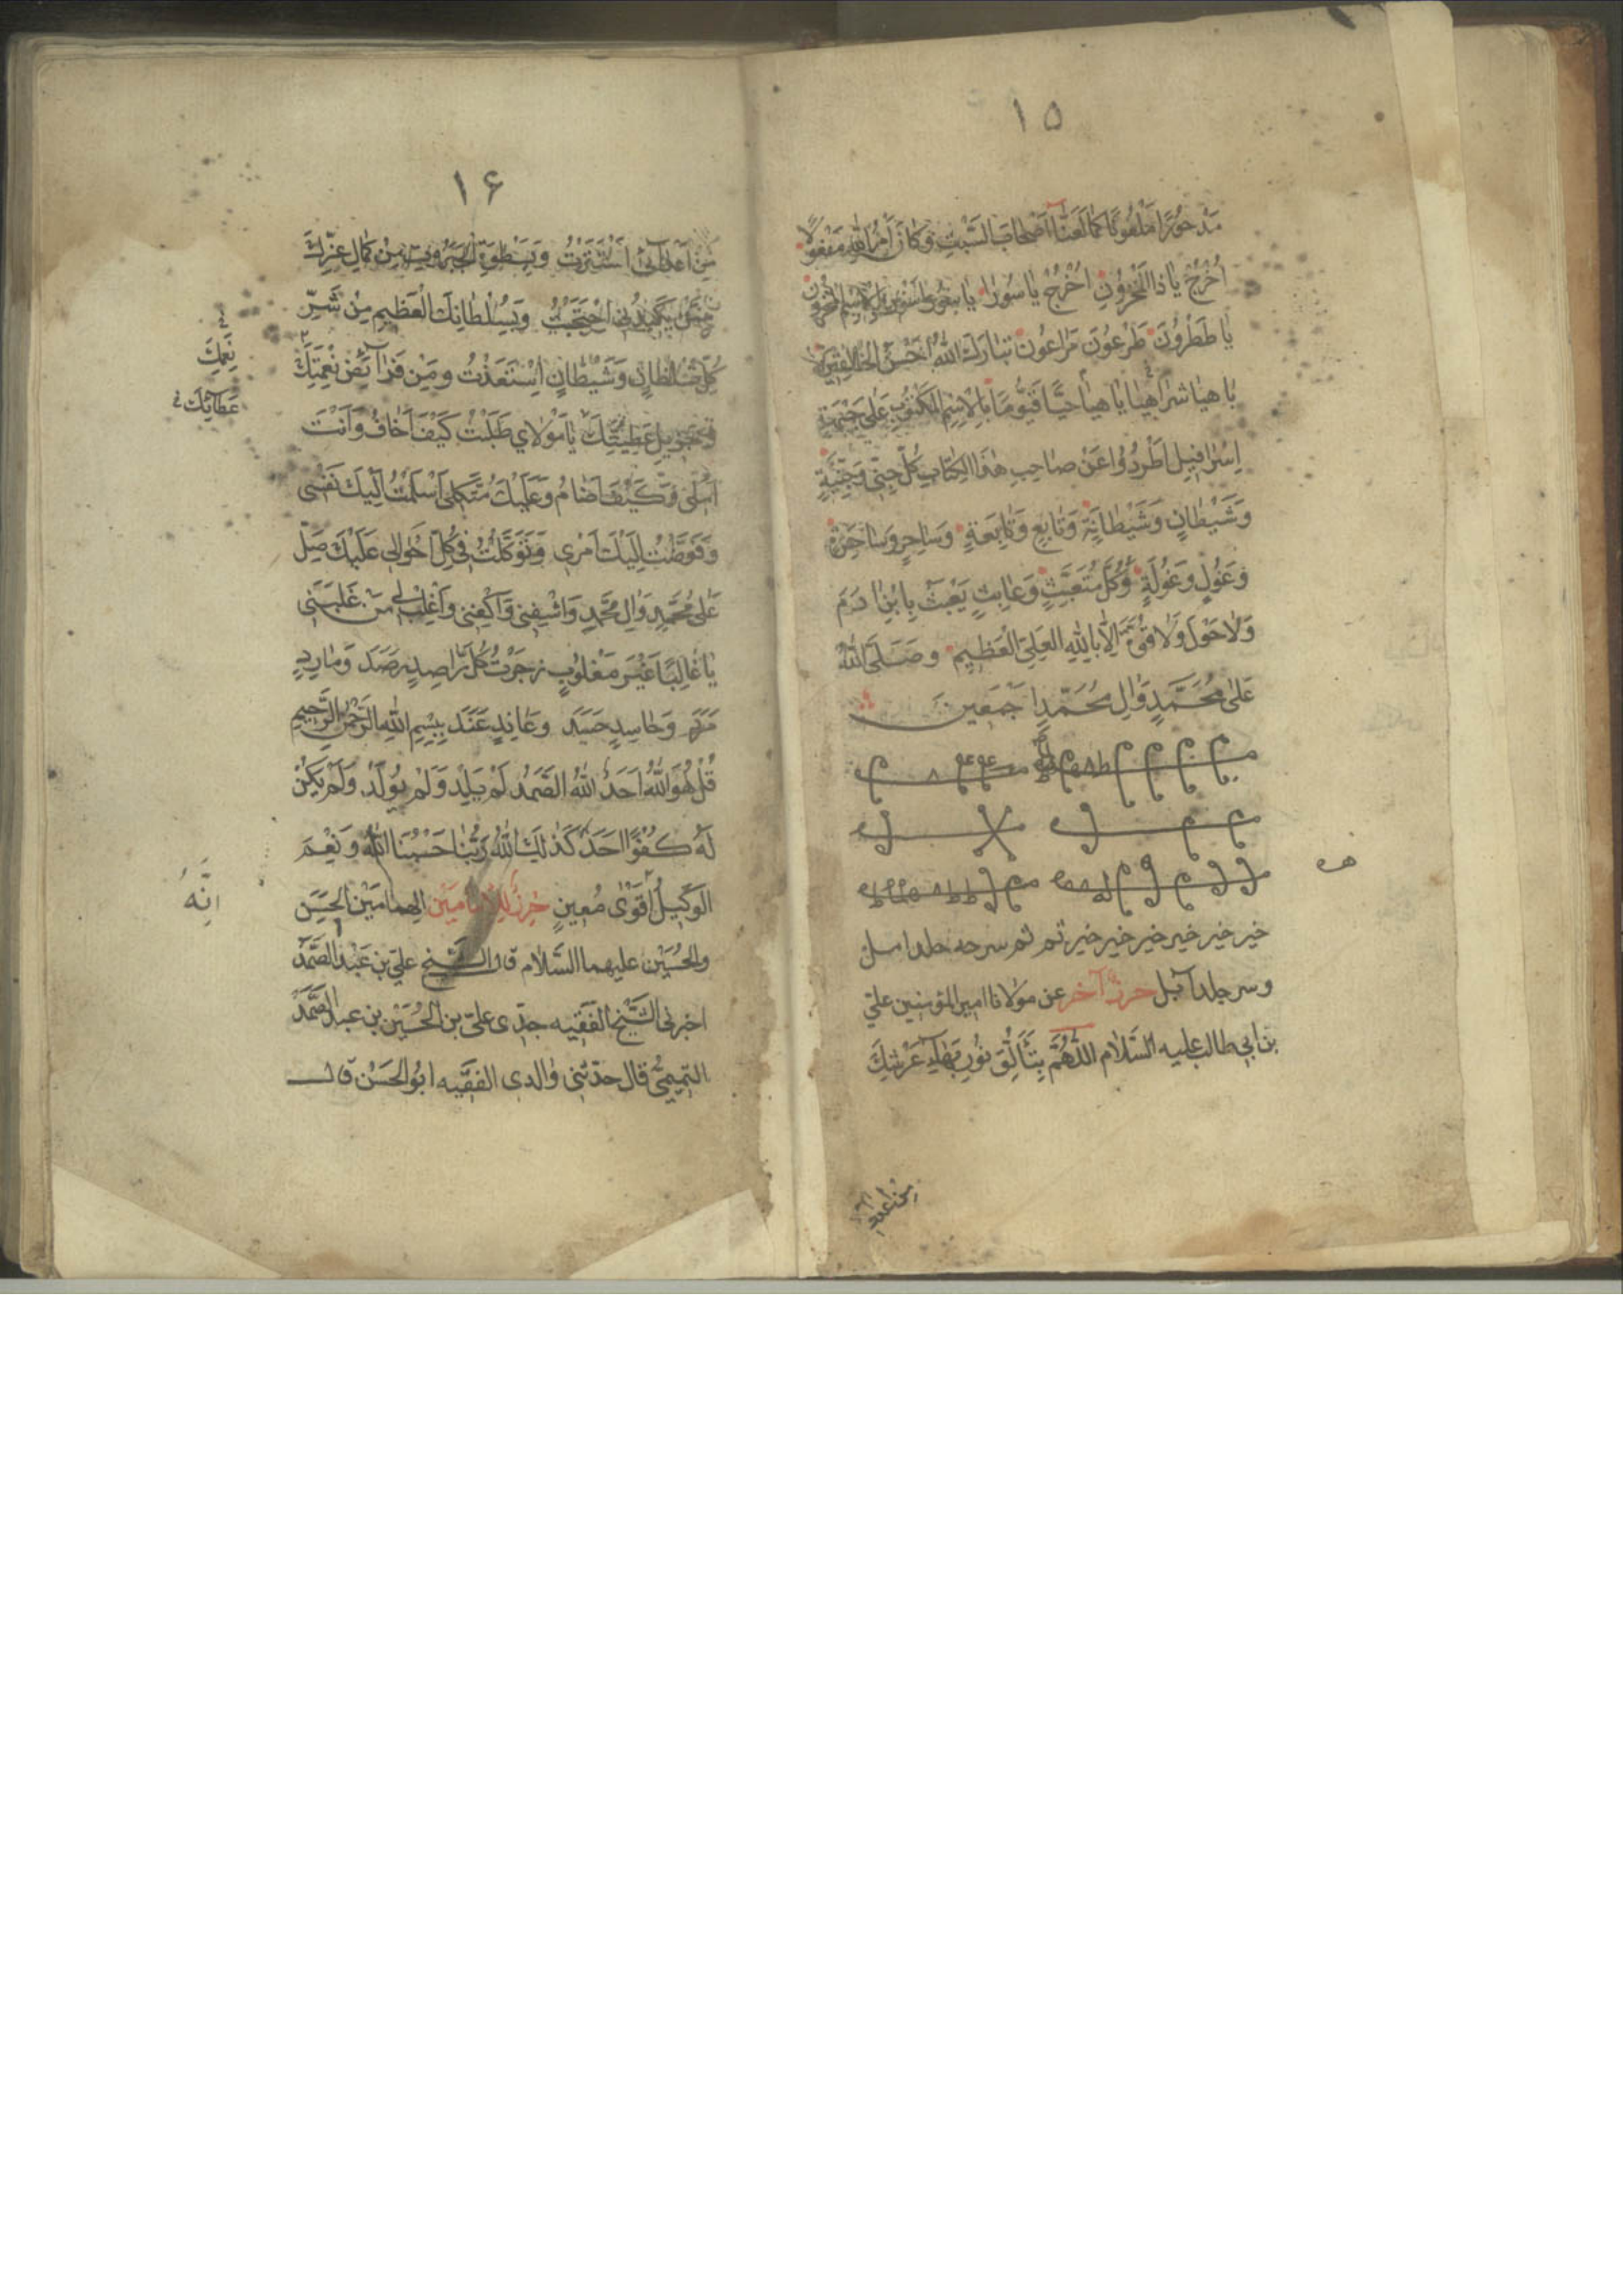 ١٥
مَدْحُورًا مَلْعُونًا كَمَا لَعَنَّا اَصْحَابَ السَّبْتِ وَكَانَ اَمْرُ اللهِ مَفْعُولًا
اُخْرُجْ يَا ذَا الْمَخْزُونِ اُخْرُجْ يَا سُورَا يَا
يَا طَطْرُونَ طَرْعُونَ مَرَاعُونَ تَبَارَكَ اللهُ اَحْسَنُ الْخَالِقِينَ
يَا هَيَا شَرَاهِيَا يَا هَيَا حَيًّا قَيُّومًا بِالْاِسْمِ الْمَكْتُوبِ عَلَى جَبْهَةِ
اِسْرَافِيلَ اُطْرُدُوا عَنْ صَاحِبِ هٰذَا الْكِتَابِ كُلَّ جِنِّيٍّ وَجِنِّيَّةٍ
وَشَيْطَانٍ وَشَيْطَانَةٍ وَتَابِعٍ وَتَابِعَةٍ وَسَاحِرٍ وَسَاحِرَةٍ
وَغُولٍ وَغُولَةٍ وَكُلَّ مُتَعَبِّثٍ وَعَابِثٍ يَعْبَثُ بِابْنِ اٰدَمَ
وَلَا حَوْلَ وَلَا قُوَّةَ اِلَّا بِاللهِ الْعَلِيِّ الْعَظِيمِ وَصَلَّى اللهُ
عَلَى مُحَمَّدٍ وَاٰلِ مُحَمَّدٍ اَجْمَعِينَ
خير خير خير خير خير خير تم تم سرحه
وسر جلد حرز آخر عن مولانا امير المؤمنين علي
بن ابي طالب عليه السَّلام اللَّهُمَّ بِتَأَلُّقِ نُورِ بَهَاءِ عَرْشِكَ
من اعدائى
١۶
مِنْ اَعْدَائِى اسْتَتَرْتُ وَبِسَطْوَةِ الْجَبَرُوتِ مِنْ كَمَالِ عِزِّكَ
مِمَّنْ يَكِيدُنِى احْتَجَبْتُ وَبِسُلْطَانِكَ الْعَظِيمِ مِنْ شَرِّ
كُلِّ سُلْطَانٍ وَشَيْطَانٍ اسْتَعَذْتُ وَمِنْ فَرَائِضِ نِعْمَتِكَ
نِعَمِكَ
وَجَزِيلِ عَطِيَّتِكَ يَا مَوْلَاي طَلَبْتُ كَيْفَ اَخَافُ وَاَنْتَ
عَطَائِكَ
اَمَلِى وَكَيْفَ اُضَامُ وَعَلَيْكَ مُتَّكَلِى اَسْلَمْتُ اِلَيْكَ نَفْسِى
وَفَوَّضْتُ اِلَيْكَ اَمْرِى وَتَوَكَّلْتُ فِى كُلِّ اَحْوَالِى عَلَيْكَ صَلِّ
عَلَى مُحَمَّدٍ وَاٰلِ مُحَمَّدٍ وَاشْفِنِى وَاكْفِنِى وَاغْلِبْ لِى مَنْ غَلَبَنِى
يَا غَالِبًا غَيْرَ مَغْلُوبٍ زَجَرْتُ كُلَّ رَاصِدٍ رَصَدَ وَمَارِدٍ
مَرَدَ وَحَاسِدٍ حَسَدَ وَعَانِدٍ عَنَدَ بِبِسْمِ اللهِ الرَّحْمٰنِ الرَّحِيمِ
قُلْ هُوَ اللهُ اَحَدٌ اللهُ الصَّمَدُ لَمْ يَلِدْ وَلَمْ يُولَدْ وَلَمْ يَكُنْ
لَهُ كُفُوًا اَحَدٌ كَذٰلِكَ اللهُ رَبُّنَا حَسْبُنَا اللهُ وَنِعْمَ
الْوَكِيلُ اَقْوَى مُعِينٍ حِرزٌ لِلْاِمَامَيْن الهمامَيْن الحَسَن
اِنَّهُ
والحُسَيْن عليهما السَّلام قال الشَّيْخ علي بن عَبْد الصَّمَد
اخبرنى الشَّيْخ الفَقِيه جدّى علىّ بن الحُسَيْن بن عبد الصَّمَد
التميمىّ قال حدّثنى والدى الفقيه ابوالحَسَن قال